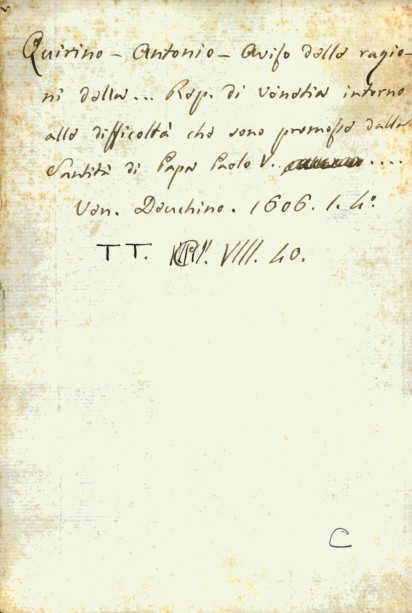 Quirino - Antonio - Aviso delle ragio-
ni della... Rep. di Venetia intorno
alle difficoltà che sono promosse dalla
Santità di Papa Paolo V. ....
Ven. Deuchino. 1606. 1. 4°.
TT. VIII. 40.
C